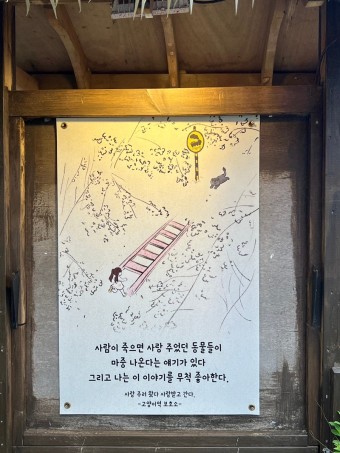 사람이 죽으면 사랑 주었던 동물들이
마중 나온다는 얘기가 있다
그리고 나는 이 이야기를 무척 좋아한다.
사랑 주러 왔다 사랑받고 간다.
-고양이역 보호소-